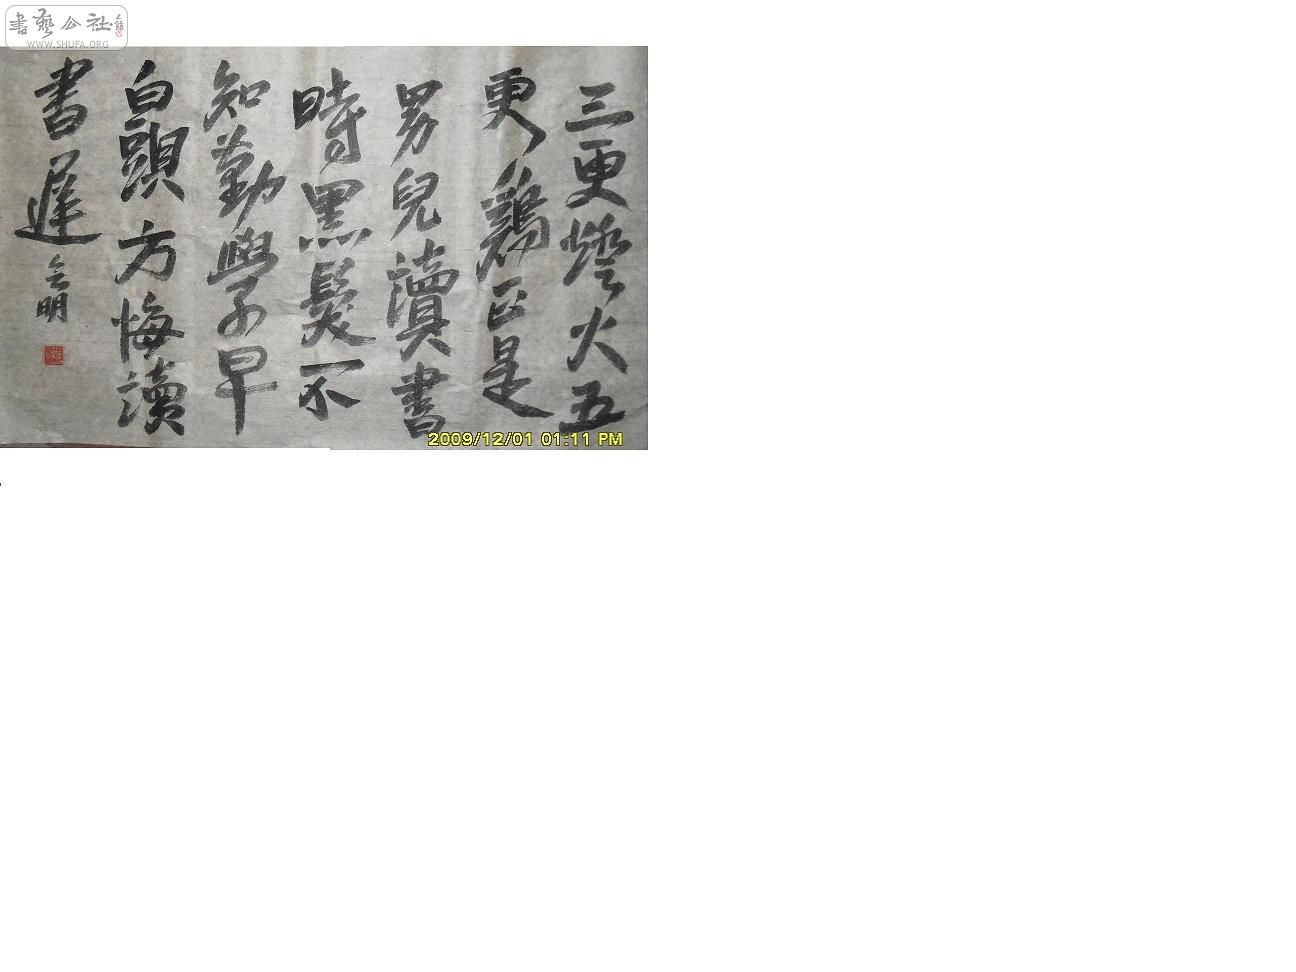 書藝公社
WWW.SHUFA.ORG
三更燈火五
更鷄正是
男兒讀書
時黑髮不
知勤學早
白頭方悔讀
書遲
2009/12/01 01:11 PM